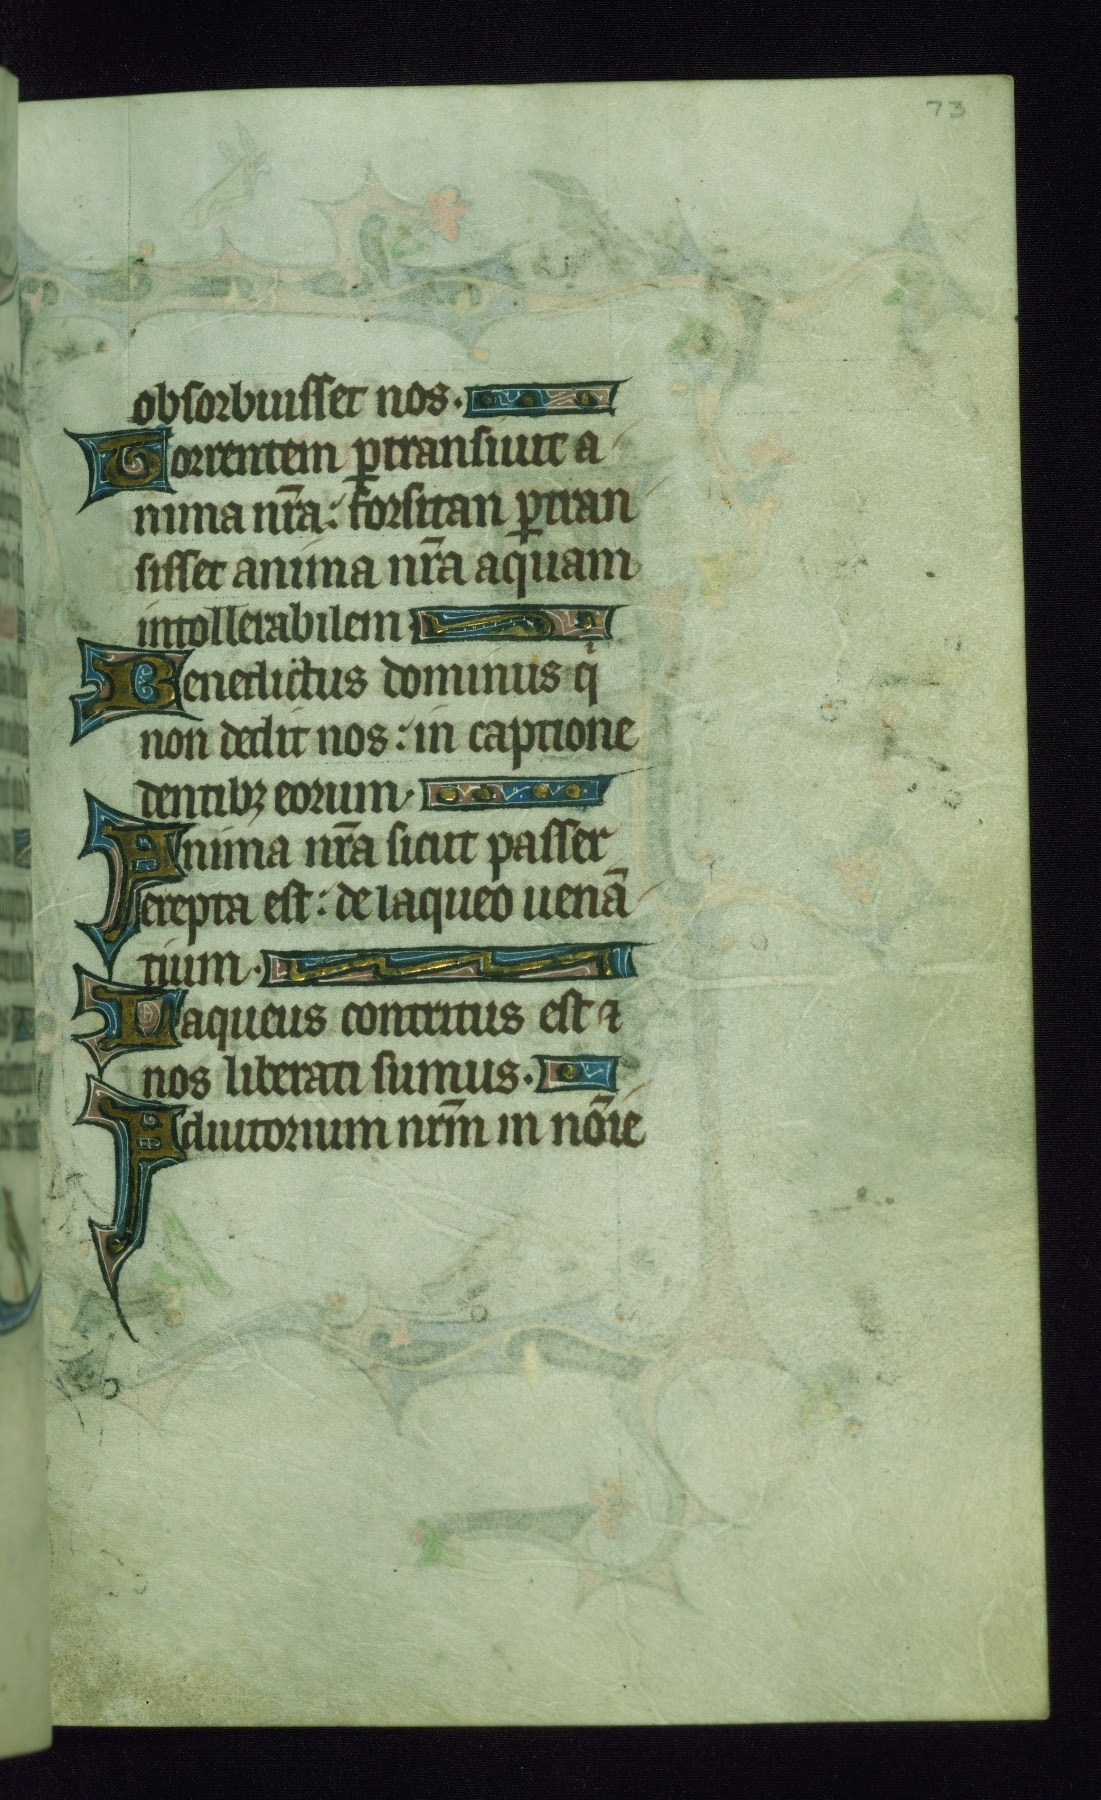 73
obsorbuisset nos.
Torrentem ꝑtransiuit a
nima nr̄a: forsitan ꝑtran
sisset anima nr̄a aquam
intollerabilem
Benedictus dominus qͥ
non dedit nos: in captione
dentibꝫ eorum.
Anima nr̄a sicut passer
erepta est: de laqueo uenā
tium.
Laqueus contritus est ⁊
nos liberati sumus.
Adiutorium nr̄m in nōie